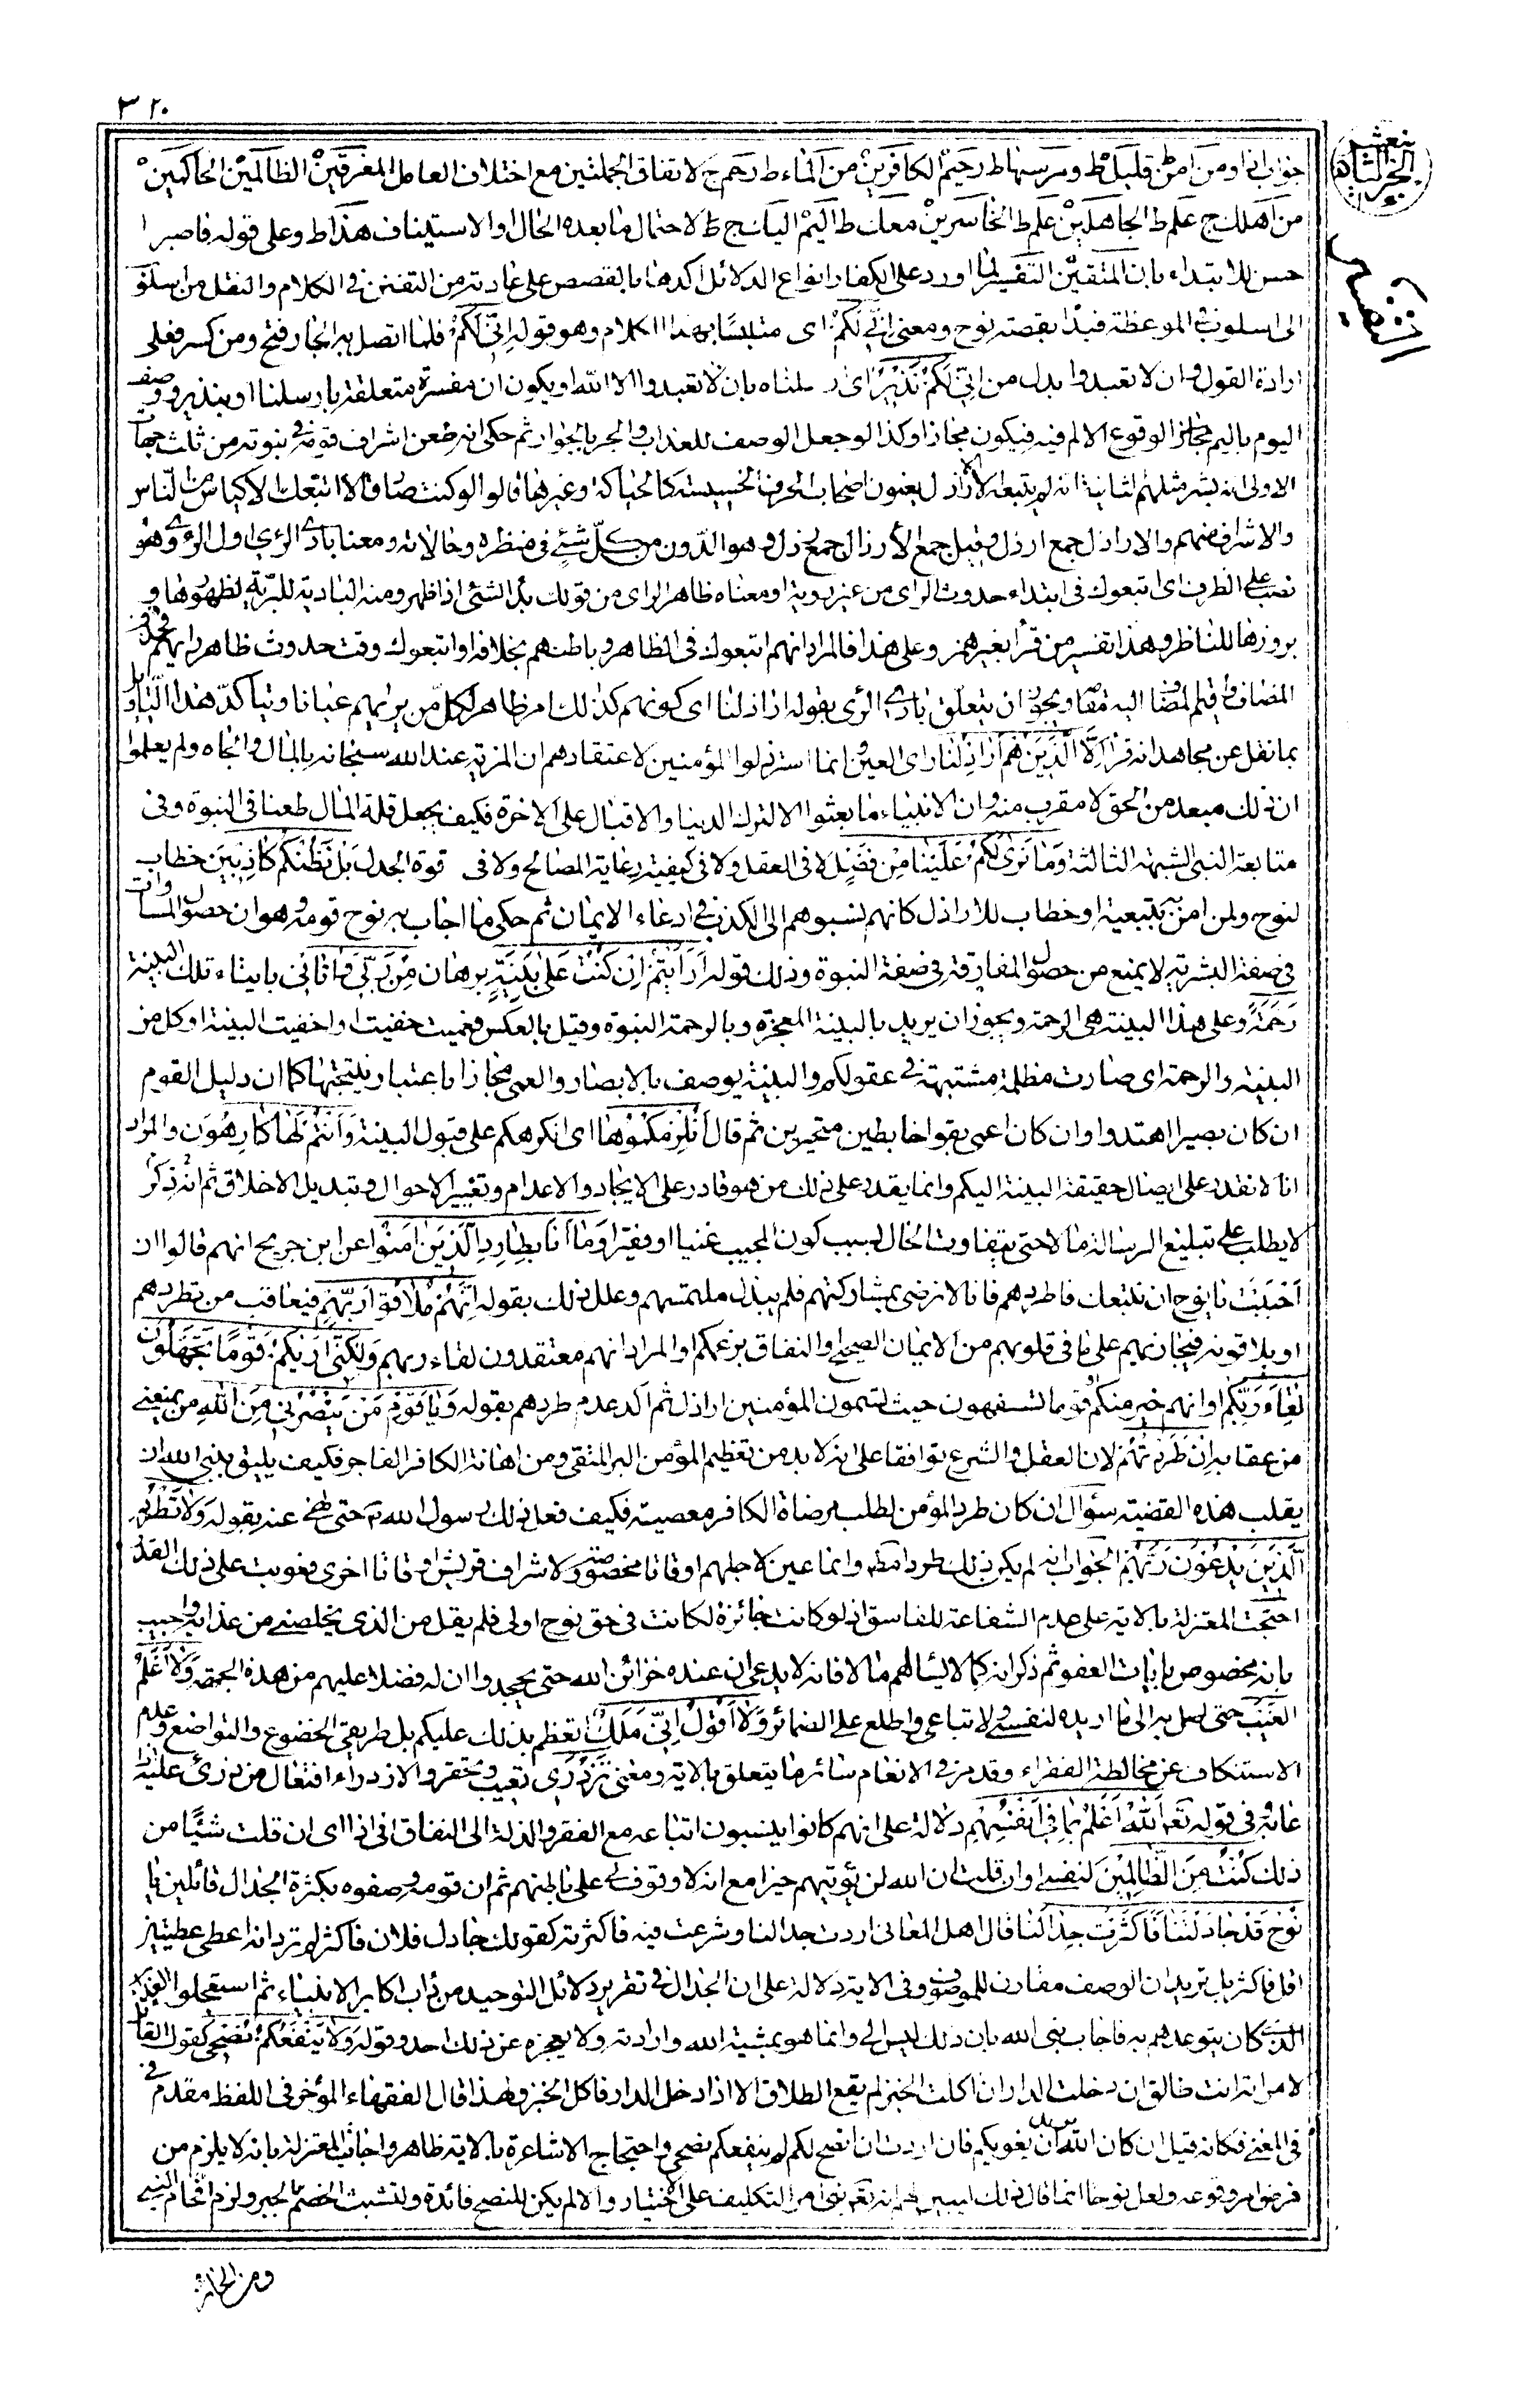 ٣٢٠
جواب اني او من امن ط قليل ط ومرسيها ط رحيم الكافرين من الماء ط رحم ج لاتفاق الجملتين مع اختلاف العامل المغرقين الظالمين الحاكمين
من اهلك ج علم ط الجاهلين علم ط الخاسرين معك ط اليم اليك ج ط لاحتمال ما بعده الحال او الاستيناف هذا ط وعلى قوله فاصبر ا
حسن للابتداء بان المتقين التفسير لما اورد على الكفار انواع الدلائل اكدها بالقصص على عادته من التفنن في الكلام والنقل من اسلوب
الى اسلوب الموعظة فبدا بقصة نوح ومعنى اني لكم اى متلبسا بهذا الكلام وهو قوله اني لكم فلما اتصل به الجار فتح ومن كسر فعلى
ارادة القول وان لا تعبدوا بدل من اني لكم نذير اى ارسلناه بان لا تعبدوا الا الله او يكون ان مفسرة متعلقة بارسلنا او بنذير ووصف
اليوم باليم مجاز لوقوع الالم فيه فيكون مجازا وكذا لو جعل الوصف للعذاب والجر بالجوار ثم حكى انه طعن اشراف قومه في نبوته من ثلث جهات
الاولى انه بشر مثلهم الثانية انه لم يتبعه الا الاراذل يعنون اصحاب الحرف الخسيسة كالحياكة وغيرها قالوا لو كنت صادقا لاتبعك الاكياس من الناس
والاشراف منهم والاراذل جمع ارذل وقيل جمع الأرذال جمع رذل وهو الدون من كل شئ في منظره وحالاته ومعنا بادى الراى اول الراى وهو
نصب على الظرف اى اتبعوك في ابتداء حدوث الراى من غير روية او معناه ظاهر الراى من قولك بدا الشئ اذا ظهر ومنه البادية للبرية لظهورها و
بروزها للناظر وهذا تفسير من قرأ بغير همز وعلى هذا فالمراد انهم اتبعوك في الظاهر وباطنهم بخلافه او اتبعوك وقت حدوث ظاهر رايهم فحذف
المضاف واقيم المضاف اليه مقامه ويجوز ان يتعلق بادى الراى بقوله اراذلنا اى كونهم كذلك امر ظاهر لكل من يريهم عيانا ويتاكد هذا التاويل
بما نقل عن مجاهد انه قرأ الا الذين هم اراذلنا راى العين وانما استرذلوا المؤمنين لاعتقادهم ان المزية عند الله سبحانه بالمال والجاه ولم يعلموا
ان ذلك مبعد من الحق لا مقرب منه وان الانبياء ما بعثوا الا لترك الدنيا والاقبال على الاخرة فكيف يجعل قلة المال طعنا في النبوة وفي
متابعة النبى الشبهة الثالثة وما نرى لكم علينا من فضل لا في العقل ولا في كيفية رعاية المصالح ولا في قوة الجدل بل نظنكم كاذبين خطاب
لنوح ولمن امن به بتبعيته او خطاب للاراذل كانهم نسبوهم الى الكذب في ادعاء الايمان ثم حكى ما اجاب به نوح قومه وهو ان حصول المساوات
في صفة البشرية لا يمنع من حصول المفارقة في صفة النبوة وذلك قوله ارايتم ان كنت على بينة برهان من ربى واتاني بايتاء تلك البينة
رحمة وعلى هذا البينة هى الرحمة ويجوز ان يريد بالبينة المعجزة وبالرحمة النبوة وقيل بالعكس فعميت خفيت او اخفيت البينة او كل من
البينة والرحمة اى صارت مظلمة مشتبهة في عقولكم والبينة يوصف بالابصار والعمى مجازا باعتبار نتيجتها كما ان دليل القوم
ان كان بصيرا اهتدوا وان كان اعمى بقوا خابطين متحيرين ثم قال انلزمكموها اى انكرهكم على قبول البينة وانتم لها كارهون والمراد
انا لا نقدر على ايصال حقيقة البينة اليكم وانما يقدر على ذلك من هو قادر على الايجاد والاعدام وتغيير الاحوال وتبديل الاخلاق ثم انه ذكر
لا يطلب على تبليغ الرسالة مالا حتى يتفاوت الحال بسبب كون المجيب غنيا او فقيرا وما انا بطارد الذين امنوا عن ابن جريج انهم قالوا ان
احببت يا نوح ان نتبعك فاطردهم فانا لا نرضى بمشاركتهم فلم يبذل ملتمسهم وعلل ذلك بقوله انهم ملاقوا ربهم فيعاقب من يطردهم
او يلاقونه فيجازيهم على ما في قلوبهم من الايمان الصحيح او النفاق بزعمكم او المراد انهم معتقدون لقاء ربهم ولكنى اريكم قوما تجهلون
لقاء ربكم او انهم خير منكم او قوما تسفهون حيث تسمون المؤمنين اراذل ثم اكد عدم طردهم بقوله ويا قوم من ينصرني من الله من يمنعنى
من عقابه ان طردتهم لان العقل والشرع توافقا على انه لا بد من تعظيم المؤمن البر المتقى ومن اهانة الكافر الفاجر فكيف يليق بنبى الله ان
يقلب هذه القضية سؤال ان كان طرد المؤمن لطلب مرضاة الكافر معصية فكيف فعل ذلك رسول الله ص حتى نهى عنه بقوله ولا تطرد
الذين يدعون ربهم الجواب انه لم يكن ذلك طردا مطلقا وانما عين لاجلهم اوقاتا مخصوصة ولاشراف قريش اوقاتا اخرى فعوتب على ذلك القدر
احتجت المعتزلة بالاية على عدم الشفاعة للفاسق اذ لو كانت جائزة لكانت في حق نوح اولى فلم يقل من الذى يخلصنى من عذابه واجيب
بانه مخصوص بايات العفو ثم ذكر انه كما لا يسألهم مالا فانه لا يدعى ان عنده خزائن الله حتى يجحدوا ان له فضلا عليهم من هذه الجهة ولا اعلم
الغيب حتى اصل به الى ما اريده لنفسى ولاتباعى واطلع على الضمائر ولا اقول انى ملك اتعظم بذلك عليكم بل طريقى الخضوع والتواضع وعدم
الاستنكاف عن مخالطة الفقراء وقد مر في الانعام سائر ما يتعلق بالاية ومعنى تزدرى تعيب وتحقر والازدراء افتعال من زرى عليه
عابه وفي قوله تع الله اعلم بما في انفسهم دلالة على انهم كانوا ينسبون اتباعه مع الفقر والذلة الى النفاق اني اذا اى ان قلت شيئا من
ذلك كنت من الظالمين لنفسى او ان قلت ان الله لن يؤتيهم خيرا مع انه لا وقوف لى على باطنهم ثم ان قومه وصفوه بكثرة الجدال قائلين يا
نوح قد جادلتنا فاكثرت جدالنا قال اهل المعاني اردت جدالنا وشرعت فيه فاكثرته كقولك جادل فلان فاكثر لم ترد انه اعطى عطيتين
اقل فاكثر بل تريد ان الوصف مقارن للموصوف وفي الاية دلالة على ان الجدال في تقرير دلائل التوحيد من داب اكابر الانبياء ثم استعجلوا العذاب
الذى كان يتوعدهم به فاجاب نبى الله بان ذلك ليس الى وانما هو بمشية الله وارادته ولا يعجزه عن ذلك احد وقوله ولا ينفعكم نصحى كقول القائل
لامراته انت طالق ان دخلت الدار ان اكلت الخبز لم يقع الطلاق الا اذا دخل الدار فاكل الخبز ولهذا قال الفقهاء المؤخر في اللفظ مقدم في
في المعنى فكانه قيل ان كان الله يريد ان يغويكم فان اردت ان انصح لكم لم ينفعكم نصحى واحتجاج الاشاعرة بالاية ظاهر واجاب المعتزلة بانه لا يلزم من
فرض امر وقوعه ولعل نوحا انما قال ذلك ليبين لهم انه تع بنى امر التكليف على الاختيار والا لم يكن للنصح فائدة ولتشبث الخصم بالجبر ولزم افحام النبى
التفسير
ومن الجائز